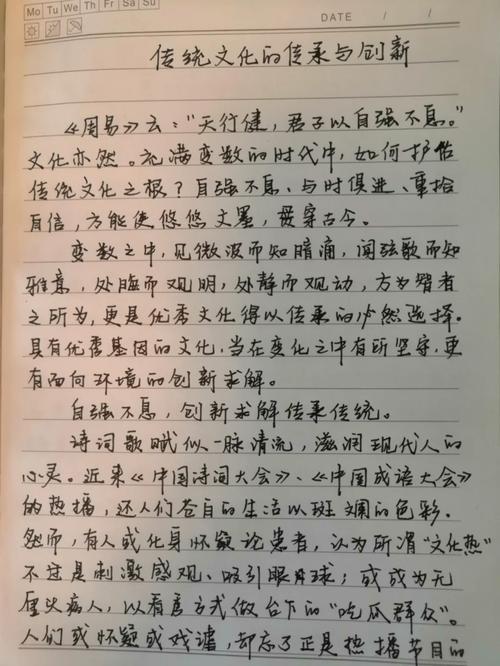 Mo Tu We Th Fr Sa Su
DATE / /
传统文化的传承与创新
《周易》云:"天行健,君子以自强不息。"
文化亦然。充满变数的时代中,如何护佑
传统文化之根?自强不息、与时俱进、重拾
自信,方能使悠悠文墨,贯穿古今。
变数之中,见微波而知暗涌,闻弦歌而知
雅意,处晦而观明,处静而观动,方为智者
之所为,更是优秀文化得以传承的必然选择。
具有优秀基因的文化,当在变化之中有所坚守,更
有面向环境的创新求解。
自强不息,创新求解传承传统。
诗词歌赋似一脉清流,滋润现代人的
心灵。近来《中国诗词大会》、《中国成语大会》
的热播,还人们苍白的生活以斑斓的色彩。
然而,有人或化身怀疑论患者,认为所谓"文化热"
不过是刺激感观、吸引眼球;或成为无
厘头病人,以看客方式做台下的"吃瓜群众"。
人们或怀疑或戏谑,却忘了正是热播节目的